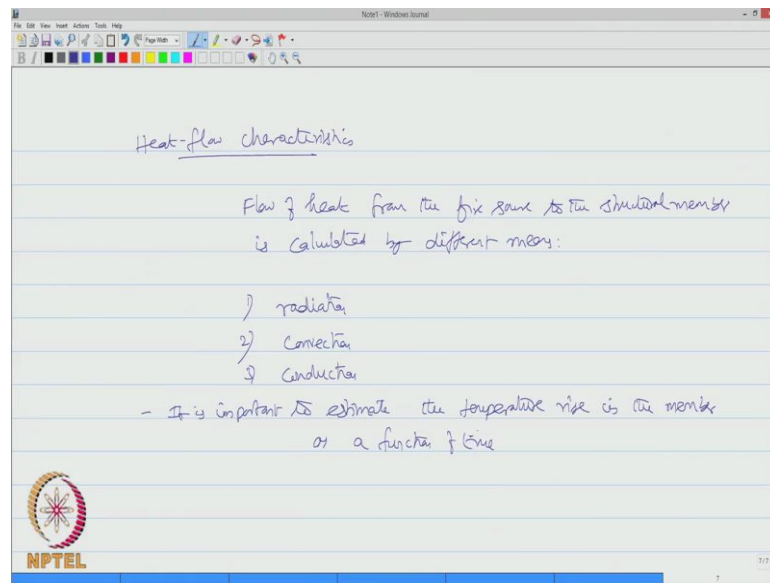 Note1 - Windows Journal
File Edit View Insert Actions Tools Help
Page Width
B I
Heat-flow characteristics
Flow of heat from the fire source to the structural member
is calculated by different means:
1) radiation
2) Convection
3) Conduction
- It is important to estimate the temperature rise in the member
as a function of time
NPTEL
7/7
7